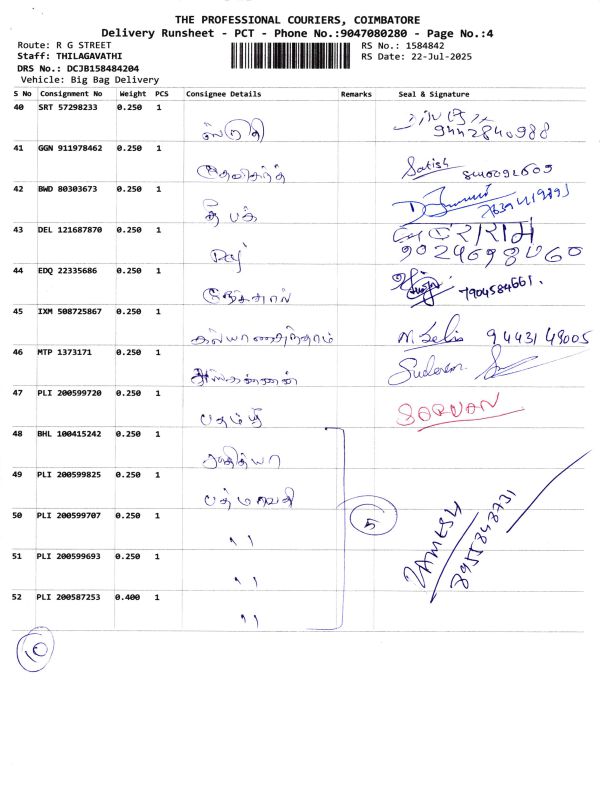 THE PROFESSIONAL COURIERS, COIMBATORE
Delivery Runsheet - PCT - Phone No.:9047080280 - Page No.:4
Route: R G STREET
Staff: THILAGAVATHI
DRS No.: DCJB158484204
Vehicle: Big Bag Delivery
RS No.: 1584842
RS Date: 22-Jul-2025
S No Consignment No Weight PCS Consignee Details Remarks Seal & Signature
40 SRT 57298233 0.250 1
ஸ்ருதி 9442840988
41 GGN 911978462 0.250 1
Satish
42 BWD 80303673 0.250 1
தீபக்
43 DEL 121687870 0.250 1
Raj
44 EDQ 22335686 0.250 1
7904584661.
45 IXM 508725867 0.250 1
கல்யாணசுந்தரம் 9443149005
46 MTP 1373171 0.250 1
47 PLI 200599720 0.250 1
SARVAN
48 BHL 100415242 0.250 1
49 PLI 200599825 0.250 1
பத்மாவதி
50 PLI 200599707 0.250 1
" 5
51 PLI 200599693 0.250 1
"
52 PLI 200587253 0.400 1
"
8955848731
10